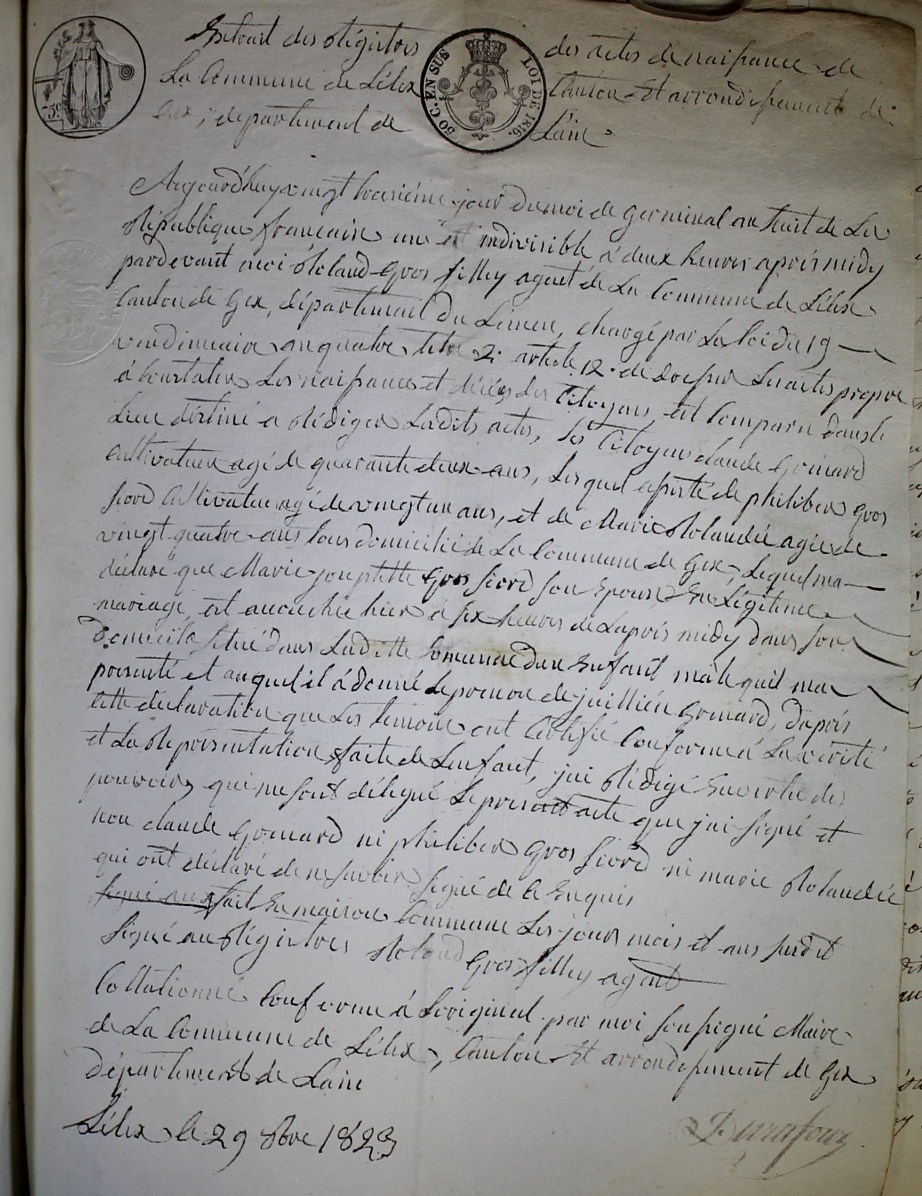 Extrait des Régistres des actes de naissance de
La Commune de Lélex Canton Et arrondissement de
Gex, département de Lain
50 C. EN SUS LOI DE 1816.
Aujourd'huy vingt troisiéme jour du moi de Germinal an huit de La
République francaise une et indivisible à deux heures après midy
pardevant moi Roland Gros filley agent de La Commune de Lélex
Canton de Gex, département du Léman, chargé par La loi du 19
vindimiaire an quatre titre 2. article 12. de Les actes propre
à Constater Les naissances et décès des Citoyens, est Comparu dans le
Lieu destiné a Rédiger Ladits actes, les Citoyen claude Groinard
Cultivateur agé de quarante deux ans, Lesquel assisté de philiber Gros
fiord Cultivateur agé de vingt un ans, et de Marie Rolandée agée de
vingt quatre ans tous domicilié de La Commune de Gex, Lequel ma
déclaré que Marie josephette Gros fiord son Epouse En Légitime
mariage, est accouchée hier à six heures de Laprès midy dans son
Domicile situé dans Laditte Comune Dun Enfant mâle quil ma
présenté et auquel il à donné le prenom de juillién Groinard, Daprès
Cette déclaration que Les témoins ont Certifié Conforme à La vérité
et La Représentation faite de Lenfant, jai Rédigé En vertu des
pouvoirs qui me sont délégué Le présent acte que jai signé et
non claude Groinard ni philiber Gros fiord ni marie Rolandée
qui ont déclaré de ne savoir signé de ce Enquis
fait En maison Commune Les jours mois et ans susdit
signé au Régistres Roland Gros filley agent
Collationné Conforme à Loriginal par moi soussigné Maire
de La Commune de Lélex, Canton Et arrondissement de Gex
département de Lain
Lélex le 29 8bre 1823